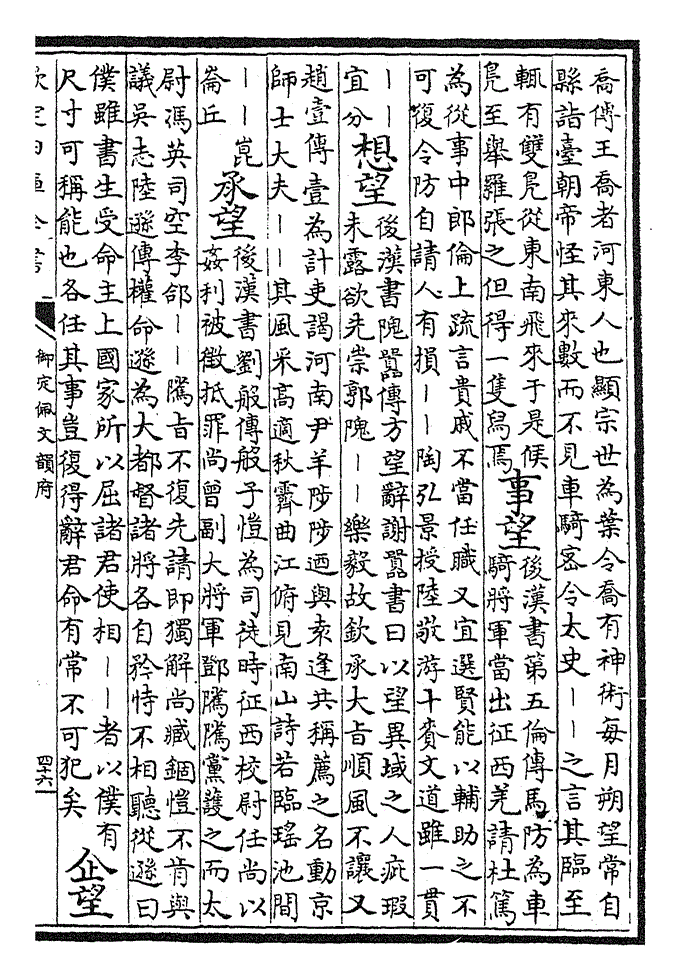 喬傳王喬者河東人也顯宗世為葉令喬有神術每月朔望常自
縣詣臺朝帝怪其來數而不見車騎密令太史——之言其臨至
輒有雙鳧從東南飛來于是候
鳧至舉羅張之但得一隻舄焉
事望
後漢書第五倫傳馬防為車
騎將軍當出征西羗請杜篤
為從事中郎倫上疏言貴戚不當任職又宜選賢能以輔助之不
可復令防自請人有損——陶弘景授陸敬游十賚文道雖一貫
——
宜分
想望
後漢書隗囂傳方望辭謝囂書曰以望異域之人疵瑕
未露欲先崇郭隗——樂毅故欽承大旨順風不讓又
趙壹傳壹為計吏謁河南尹羊陟陟迺與袁逢共稱薦之名動京
師士大夫——其風采高適秋霽曲江俯見南山詩若臨瑤池間
——崑
崙丘
承望
後漢書劉般傳般子愷為司徒時征西校尉任尚以
姦利被徵抵罪尚曾副大將軍鄧騭騭黨護之而太
尉馮英司空李郃——騭旨不復先請即獨解尚臧錮愷不肯與
議吳志陸遜傳權命遜為大都督諸將各自矜恃不相聽從遜曰
僕雖書生受命主上國家所以屈諸君使相——者以僕有
尺寸可稱能也各任其事豈復得辭君命有常不可犯矣
企望
欽定四庫全書
御定佩文韻府
四十六